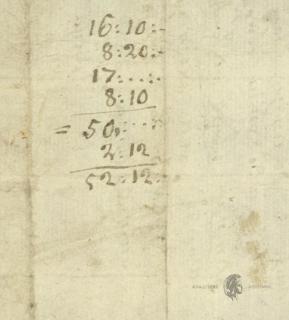 16:10:-
8:20:-
17:...:-
8:10
= 50,...:
2:12
52:12.